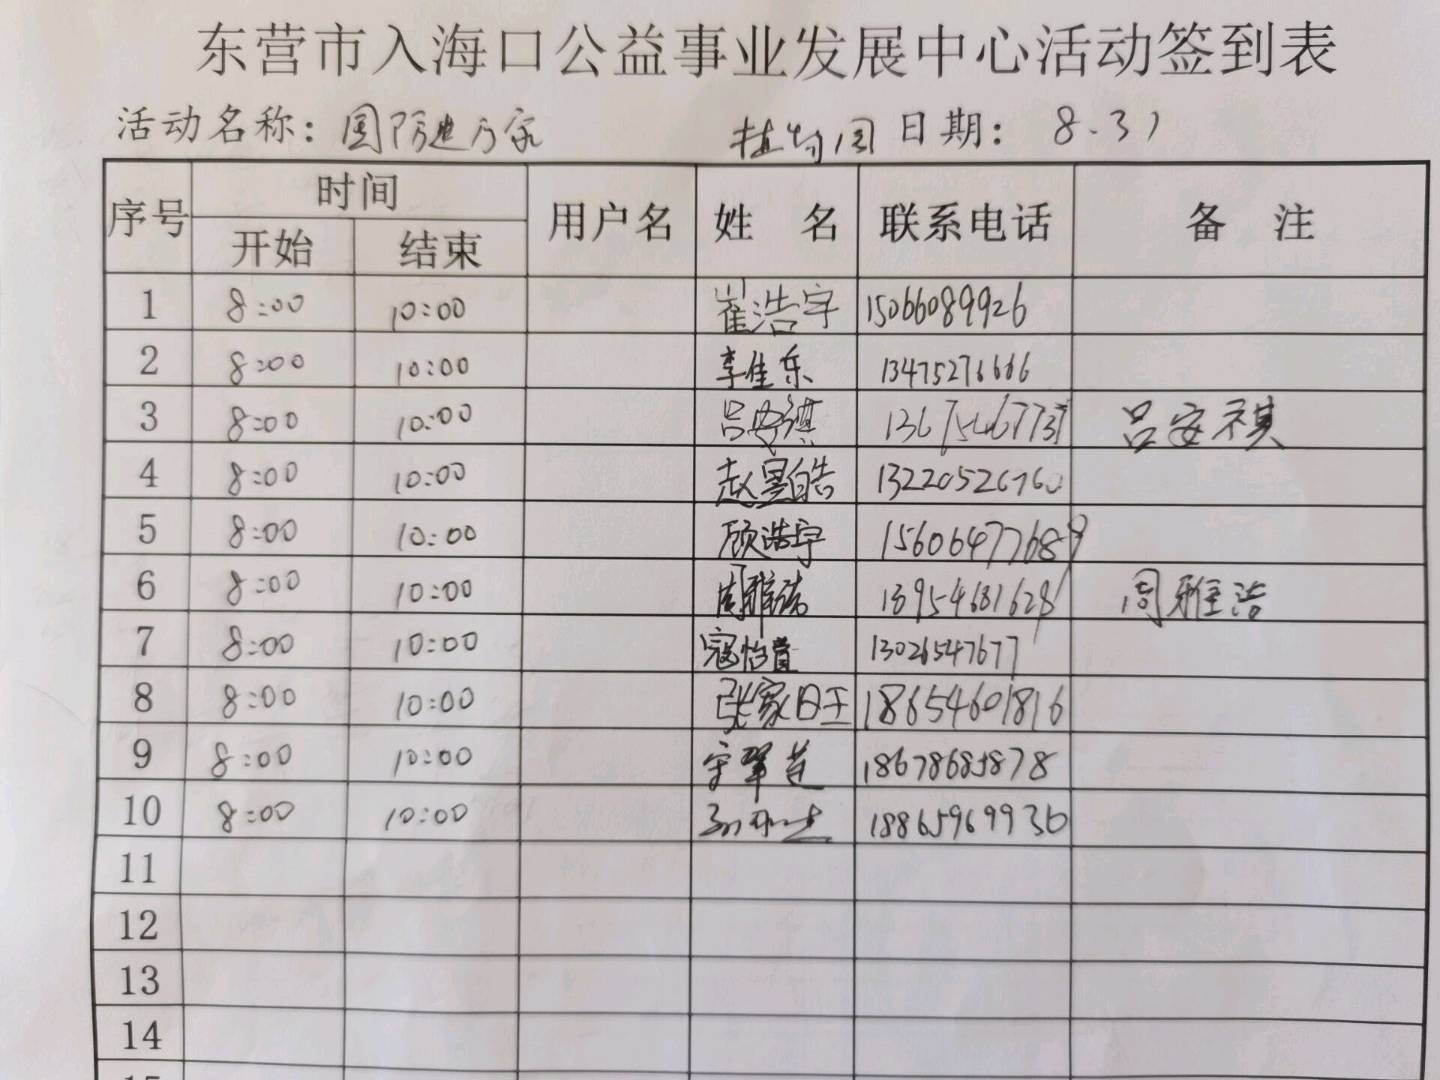 东营市入海口公益事业发展中心活动签到表
活动名称：国防进万家 植物园 日期： 8.31
序号 时间 用户名 姓 名 联系电话 备 注
开始 结束
1 8:00 10:00 崔浩宇 15066089926
2 8:00 10:00 李佳乐 13475276666
3 8:00 10:00 吕安祺 13675467737 吕安祺
4 8:00 10:00 赵昱皓 13220526760
5 8:00 10:00 顾浩宇 15606477689
6 8:00 10:00 周雅洁 13954681628 周雅洁
7 8:00 10:00 寇怡萱 13026547677
8 8:00 10:00 张家旺 18654601816
9 8:00 10:00 18678685878
10 8:00 10:00 18865969936
11
12
13
14
15